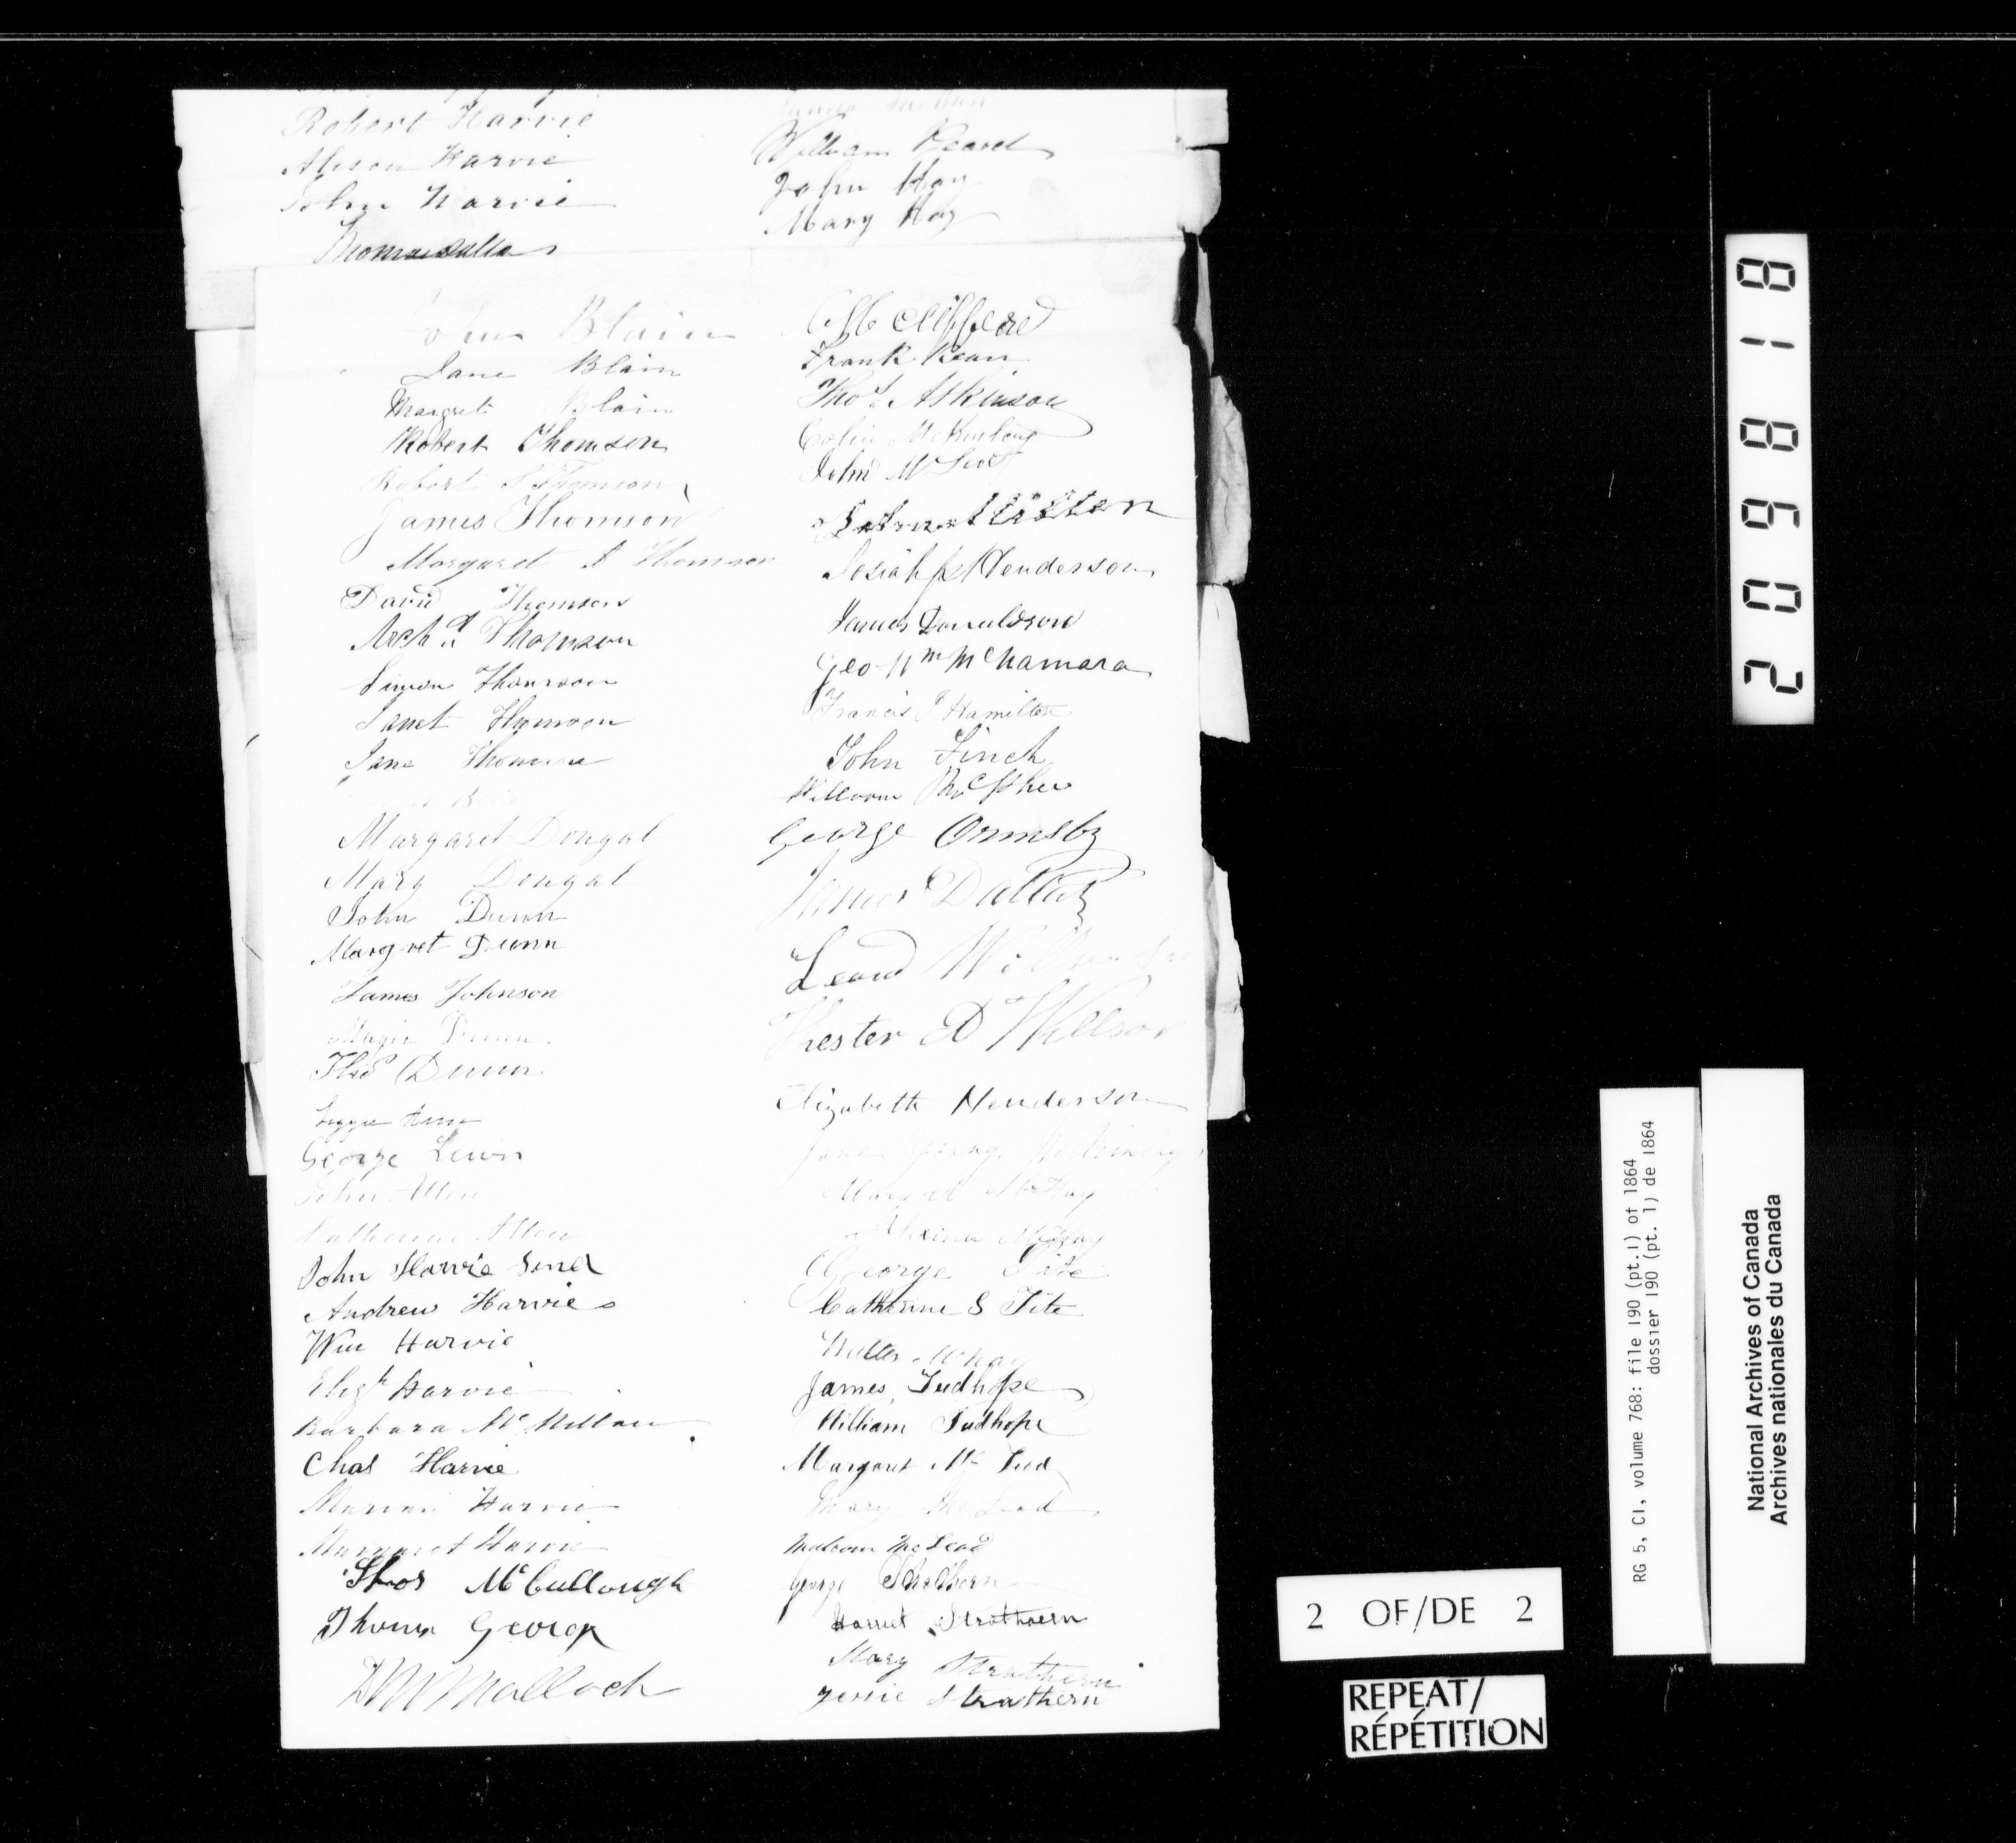 Robert Harvie
Alison Harvie
John Harvie
Thomas
James
William Beard
John Hay
Mary Hay
John Blain
Jane Blain
Margret Blain
Robert Thomson
Robert S Thomson
James Thomson
Margaret A Thomson
David Thomson
Archd Thomson
Simon Thomson
Janet Thomson
Jane Thomson
Margaret Dougal
Mary Dougal
John Dunn
Margret Dunn
James Johnson
Magie Dunn
Thos Dunn
George Lewis
John Allen
Catherine Allen
John Harvie Send
Andrew Harvie
Wm Harvie
Elizh Harvie
Barbara McMillan
Chas Harvie
Marion Harvie
Margaret Harvie
Thos McCullough
Thomas George
Malloch
Clifford
Frank Kean
Thos Atkinson
Colin McKinlay
John McLeod
Josiah Henderson
James Donaldson
Geo Wm McNamara
Francis J Hamilton
John Finch
William McPhee
George Ormsby
James Dallas
Chester D Willson
Elizabeth Henderson
Jane Young McKinlay
Margret McKay
Alexina McKay
George Tite
Catherine S Tite
Walter McKay
James Tudhope
William Tudhope
Margaret Mc
Mary McLeod
Malcom McLeod
George Strathern
Harriet Strathearn
Mary Strathern
Jessie Strathern
20968 18
RG 5, C1, volume 768: file 190 (pt.1) of 1864
dossier 190 (pt. 1) de 1864
National Archives of Canada
Archives nationales du Canada
2 OF/DE 2
REPEAT/
RÉPÉTITION